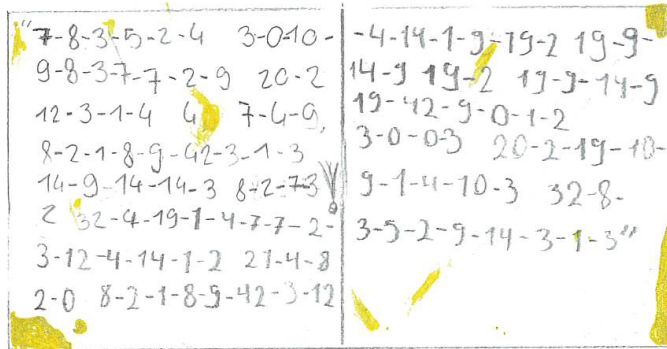 "7-8-3-5-2-4 3-0-10-
9-8-3-7-7-2-9 20-2
12-3-1-4 4 7-4-9,
8-2-1-8-9-42-3-1-3
14-9-14-14-3 8-2-7-3
2 32-4-19-1-4-7-7-2-
3-12-4-14-1-2 21-4-8
2-0 8-2-1-8-9-42-3-12
-4-14-1-9-19-2 19-9-
14-9 19-2 19-9-14-9
19-42-9-0-1-2
3-0-0-3 20-2-19-10-
9-1-4-10-3 32-8-
3-5-2-9-14-3-1-3"